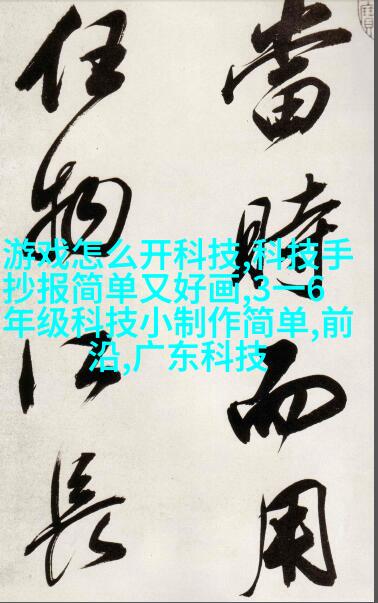 當時而用
任物以長
游戏怎么开科技,科技手
抄报简单又好画,3一6
年级科技小制作简单,前
沿,广东科技